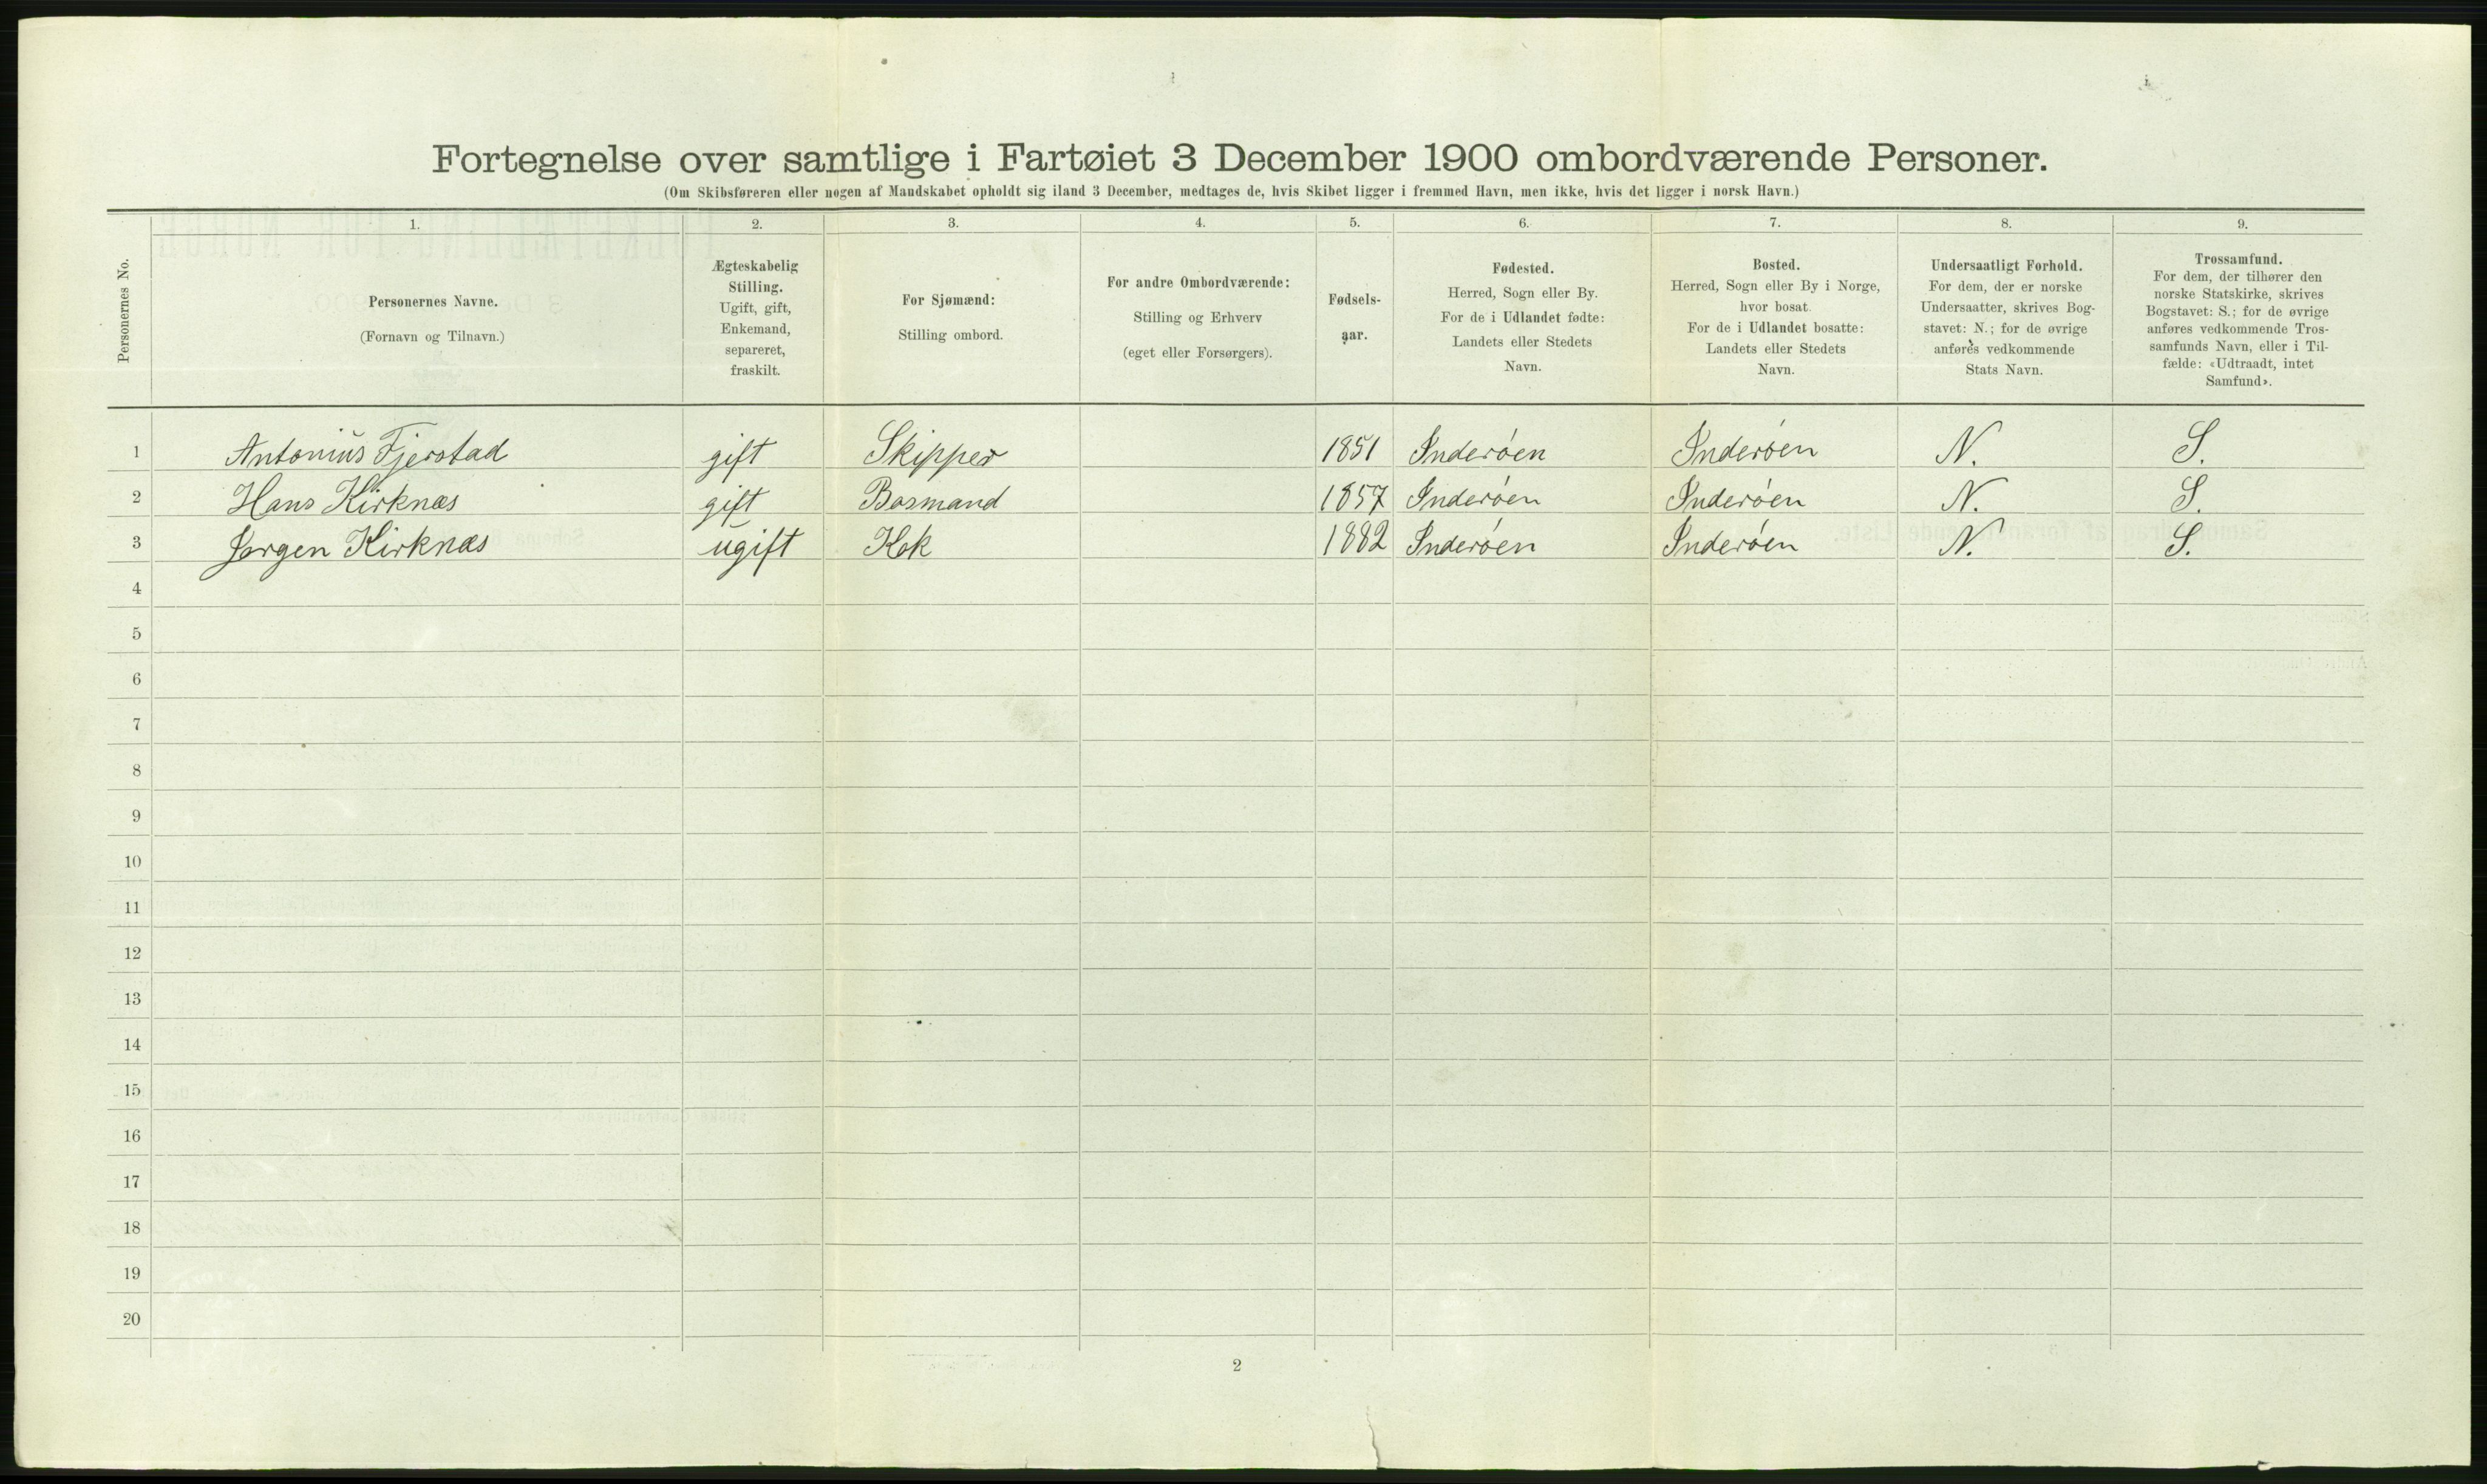 Fortegnelse over samtlige i Fartøiet 3 December 1900 ombordværende Personer.
(Om Skibsføreren eller nogen af Mandskabet opholdt sig iland 3 December, medtages de, hvis Skibet ligger i fremmed Havn, men ikke, hvis det ligger i norsk Havn.)
Personernes No.
1.
Personernes Navne.
(Fornavn og Tilnavn.)
2.
Ægteskabelig
Stilling.
Ugift, gift,
Enkemand,
separeret,
fraskilt.
3.
For Sjømænd:
Stilling ombord.
4.
For andre Ombordværende:
Stilling og Erhverv
(eget eller Forsørgers).
5.
Fødsels-
aar.
6.
Fødested.
Herred, Sogn eller By.
For de i Udlandet fødte:
Landets eller Stedets
Navn.
7.
Bosted.
Herred, Sogn eller By i Norge,
hvor bosat.
For de i Udlandet bosatte:
Landets eller Stedets
Navn.
8.
Undersaatligt Forhold.
For dem, der er norske
Undersaatter, skrives Bog-
stavet: N.; for de øvrige
anføres vedkommende
Stats Navn.
9.
Trossamfund.
For dem, der tilhører den
norske Statskirke, skrives
Bogstavet: S.; for de øvrige
anføres vedkommende Tros-
samfunds Navn, eller i Til-
fælde: «Udtraadt, intet
Samfund».
1 Antonius Fjerstad gift Skipper 1851 Inderöen Inderöen N. S.
2 Hans Kirknæs gift Bosmand 1857 Inderöen Inderöen N. S.
3 Jørgen Kirknæs ugift Kok 1882 Inderöen Inderöen N. S.
4
5
6
7
8
9
10
11
12
13
14
15
16
17
18
19
20
2